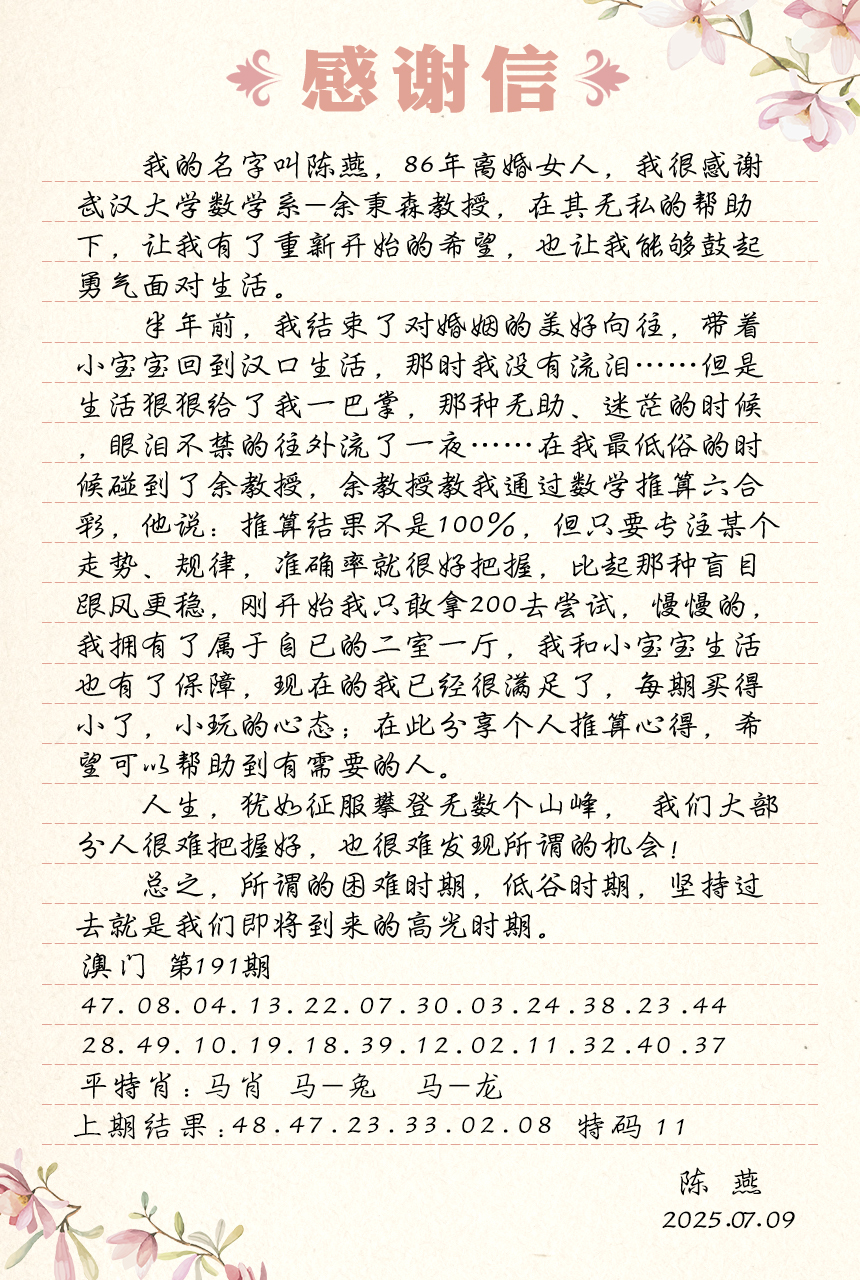 感谢信
我的名字叫陈燕，86年离婚女人，我很感谢
武汉大学数学系—余秉森教授，在其无私的帮助
下，让我有了重新开始的希望，也让我能够鼓起
勇气面对生活。
半年前，我结束了对婚姻的美好向往，带着
小宝宝回到汉口生活，那时我没有流泪……但是
生活狠狠给了我一巴掌，那种无助、迷茫的时候
，眼泪不禁的往外流了一夜……在我最低俗的时
候碰到了余教授，余教授教我通过数学推算六合
彩，他说：推算结果不是100%，但只要专注某个
走势、规律，准确率就很好把握，比起那种盲目
跟风更稳，刚开始我只敢拿200去尝试，慢慢的，
我拥有了属于自已的二室一厅，我和小宝宝生活
也有了保障，现在的我已经很满足了，每期买得
小了，小玩的心态；在此分享个人推算心得，希
望可以帮助到有需要的人。
人生，犹如征服攀登无数个山峰， 我们大部
分人很难把握好，也很难发现所谓的机会！
总之，所谓的困难时期，低谷时期，坚持过
去就是我们即将到来的高光时期。
澳门 第191期
47.08.04.13.22.07.30.03.24.38.23.44
28.49.10.19.18.39.12.02.11.32.40.37
平特肖：马肖 马—兔 马—龙
上期结果：48.47.23.33.02.08 特码 11
陈 燕
2025.07.09